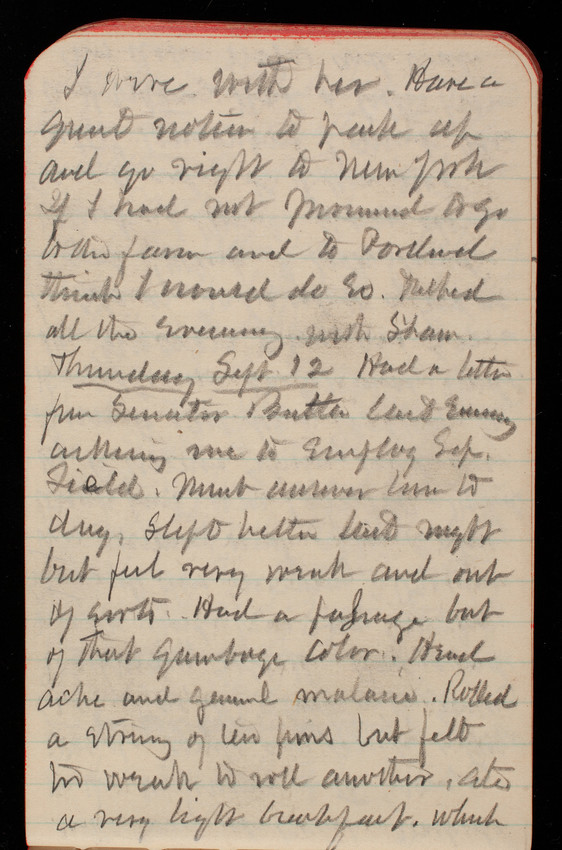 I drive with her. Have a
great notion to pack up
and go right to New York
If I had not promised to go
to the farm and to Portland
think I would do so. Talked
all the evening with Shaw.
Thursday Sept 12 Had a letter
from Senator Butler last Evening
asking me to Employ Gep.
Field. Must answer him to
day, Slept better last night
but feel very weak and out
of sorts. Had a passage but
of that gamboge color. Head
ache and general malaise. Rolled
a string of ten pins but felt
too weak to roll another, ate
a very light breakfast, which